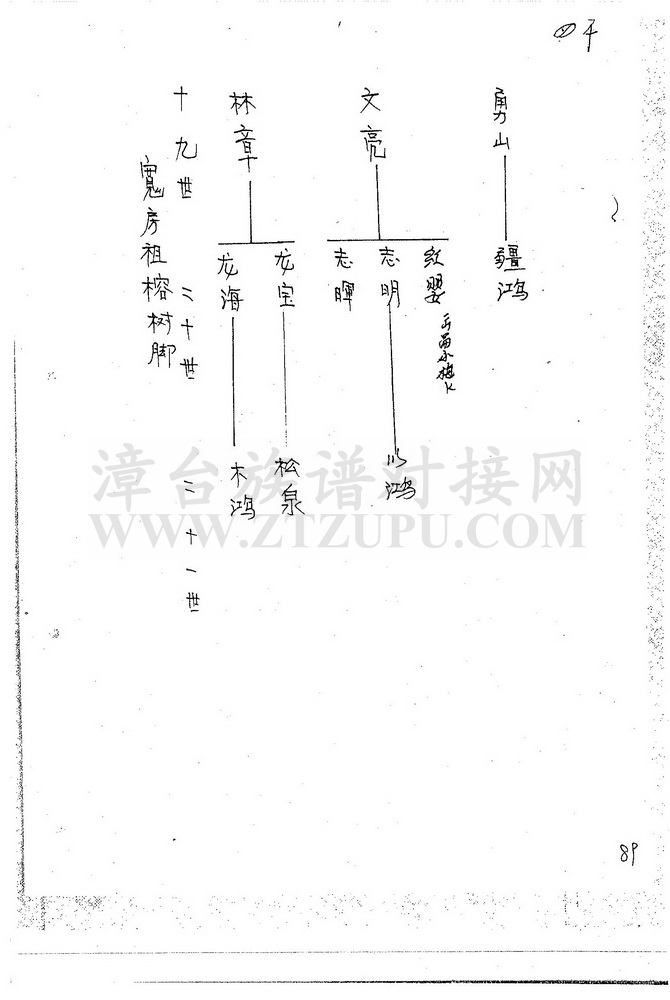 十九世
二十世
二十一世
寬房祖榕树脚
林章
龙海
龙宝
木鸿
松泉
文亮
志暉
志明
红婴
川鸿
勇山
疆鸿
89
漳台族谱对接网
WWW.ZTZUPU.COM